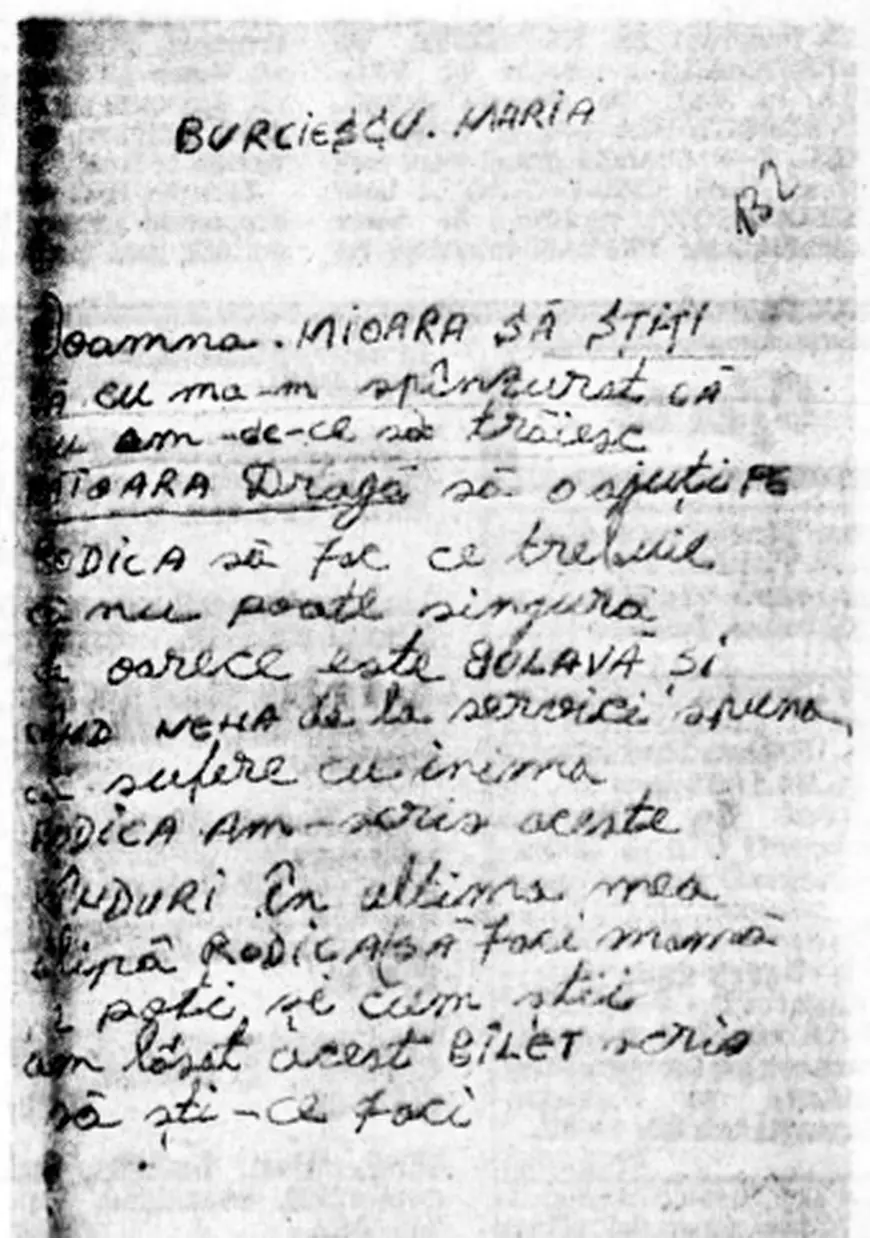 BURCIESCU. MARIA
132
Doamna. MIOARA SĂ ȘTIȚI
CĂ EU ma-m spînzurat CĂ
nu am-de-ce să trăiesc
MIOARA Dragă să o ajuți PE
RODICA să fac ce trebuie
că nu poate singura
oarece este BOLAVĂ și
de la servici spuna
că sufere cu inima
RODICA Am-scris aceste
RÎNDURI În ultima mea
clipă RODICA SĂ faci mamă
ce poți și cum știi
am lăsat acest BILET scris
să ști-ce faci